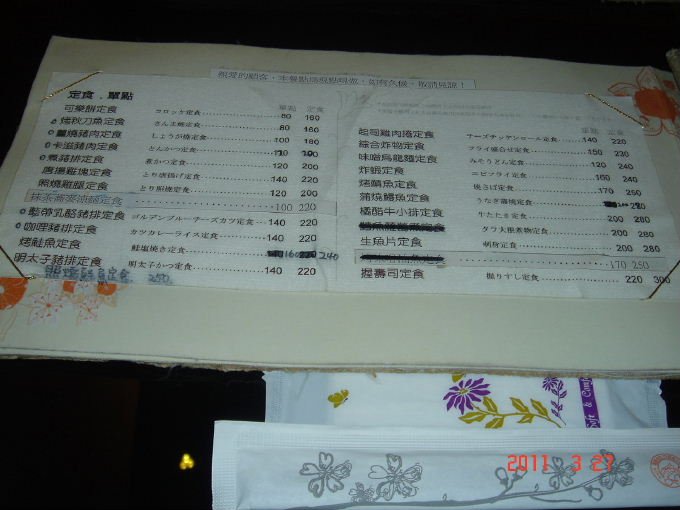 親愛的顧客,本餐點為現點現做,如有久候,敬請見諒!
定食.單點
單點 定食
可樂餅定食 コロッケ定食 80 160
烤秋刀魚定食 さんま焼定食 80 160
薑燒豬肉定食 しょうが焼定食 100 180
卡滋豬排定食 とんかつ定食
煮豬排定食 煮かつ定食 120 200
唐揚雞塊定食 とり唐揚げ定食 140 220
照燒雞腿定食 とり照焼定食 140 220
100 220
藍帶乳酪豬排定食 ゴルデンブルーチーズカツ定食 140 220
咖哩豬排定食 カツカレーライス定食 140 220
烤鮭魚定食 鮭塩焼き定食 160 240
明太子豬排定食 明太子かつ定食 140 220
250
單點 定食
起司雞肉捲定食 チーズチッケンロール定食 140 220
綜合炸物定食 フライ盛合せ定食 150 230
味噌烏龍麵定食 みそうどん定食 120 240
炸蝦定食 エビフライ定食 160 240
烤鯖魚定食 焼さば定食 170 250
蒲燒鰻魚定食 うなぎ蒲焼定食
橘醋牛小排定食 牛たたき定食 200 280
タワ大根煮物定食 200 280
生魚片定食 刺身定食 200 280
170 250
握壽司定食 握りすし定食 220 300
Soft & Comf
2011 3 27